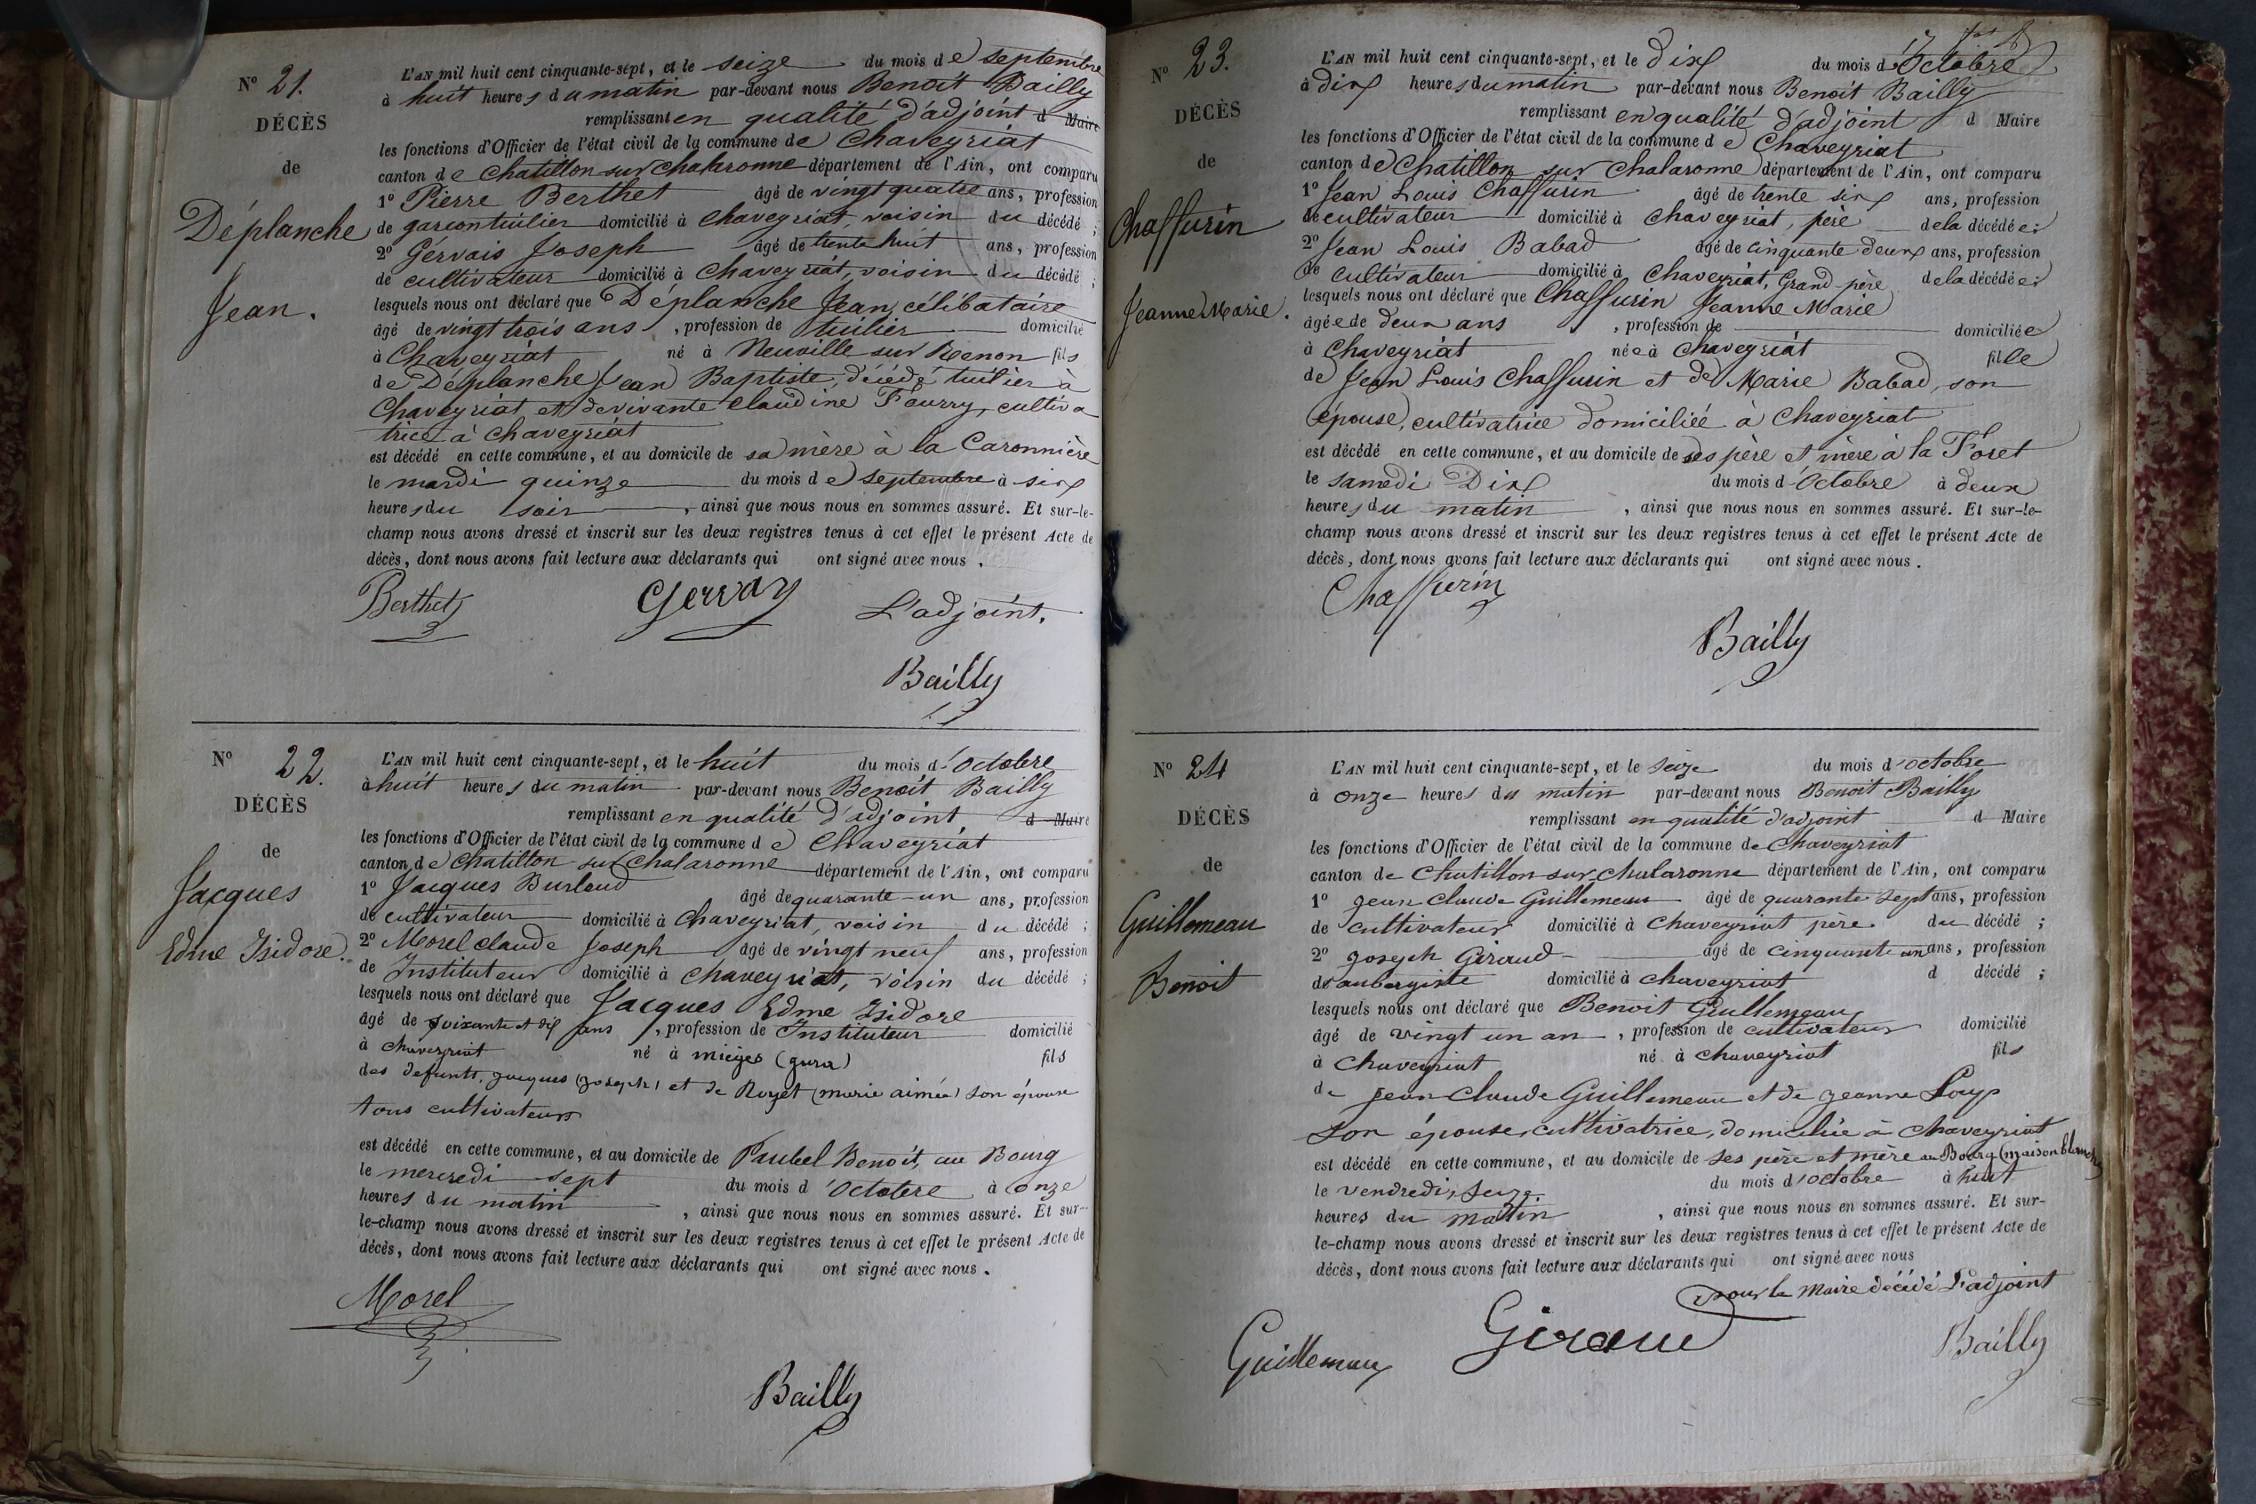 N° 21.
DÉCÈS
de
Déplanche
Jean.
L'AN mil huit cent cinquante-sept, et le seize du mois de septembre
à huit heures du matin par-devant nous Benoit Bailly
remplissant en qualité d'adjoint d Maire
les fonctions d'Officier de l'état civil de la commune de Chaveyriat
canton de Chatillon sur Chalaronne département de l'Ain, ont comparu
1° Pierre Berthet âgé de vingt quatre ans, profession
de garcon tuilier domicilié à Chaveyriat, voisin du décédé ;
2° Gervais Joseph âgé de trente huit ans, profession
de cultivateur domicilié à Chaveyriat, voisin du décédé ;
lesquels nous ont déclaré que Déplanche Jean, célibataire
âgé de vingt trois ans , profession de tuilier domicilié
à Chaveyriat né à Neuville sur Renon fils
de Déplanche Jean Baptiste, décédé tuilier à
Chaveyriat et de vivante Claudine Fourry, cultiva
trice à Chaveyriat
est décédé en cette commune, et au domicile de sa mère à la Caronnière
le mardi quinze du mois de septembre à six
heures du soir , ainsi que nous nous en sommes assuré. Et sur-le-
champ nous avons dressé et inscrit sur les deux registres tenus à cet effet le présent Acte de
décès, dont nous avons fait lecture aux déclarants qui ont signé avec nous .
Berthet Gervay L'adjoint.
Bailly
N° 22.
DÉCÈS
de
Jacques
Edme Isidore.
L'AN mil huit cent cinquante-sept, et le huit du mois d'Octobre
à huit heures du matin par-devant nous Benoit Bailly
remplissant en qualité d'adjoint d Maire
les fonctions d'Officier de l'état civil de la commune de Chaveyriat
canton de Chatillon sur Chalaronne département de l'Ain, ont comparu
1° Jacques Burlaud âgé de quarante-un ans, profession
de cultivateur domicilié à Chaveyriat, voisin du décédé ;
2° Morel Claude Joseph âgé de vingt neuf ans, profession
de Instituteur domicilié à Chaveyriat, voisin du décédé ;
lesquels nous ont déclaré que Jacques Edme Isidore
âgé de soixante et dix ans , profession de Instituteur domicilié
à chaveyriat né à mièges (jura) fils
des defunts, jacques (joseph) et de Royet (marie aimée) son épouse
tous cultivateurs
est décédé en cette commune, et au domicile de Paubel Benoit, au Bourg
le mercredi sept du mois d'Octobre à onze
heures du matin , ainsi que nous nous en sommes assuré. Et sur-
le-champ nous avons dressé et inscrit sur les deux registres tenus à cet effet le présent Acte de
décès, dont nous avons fait lecture aux déclarants qui ont signé avec nous .
Morel
Bailly
N° 23.
DÉCÈS
de
Chaffurin
Jeanne Marie.
L'AN mil huit cent cinquante-sept, et le dix du mois d'Octobre
à dix heures du matin par-devant nous Benoit Bailly
remplissant en qualité d'adjoint d Maire
les fonctions d'Officier de l'état civil de la commune de Chaveyriat
canton de Chatillon sur Chalaronne département de l'Ain, ont comparu
1° Jean Louis Chaffurin âgé de trente six ans, profession
de cultivateur domicilié à Chaveyriat, père de la décédée ;
2° Jean Louis Babad âgé de cinquante deux ans, profession
de cultivateur domicilié à Chaveyriat, Grand-père de la décédée ;
lesquels nous ont déclaré que Chaffurin Jeanne Marie
âgée de deux ans , profession de domiciliée
à Chaveyriat née à Chaveyriat fille
de Jean Louis Chaffurin et de Marie Babad, son
épouse, cultivatrice domiciliée à Chaveyriat
est décédé en cette commune, et au domicile de ses père et mère à la Foret
le samedi Dix du mois d'Octobre à deux
heures du matin , ainsi que nous nous en sommes assuré. Et sur-le-
champ nous avons dressé et inscrit sur les deux registres tenus à cet effet le présent Acte de
décès, dont nous avons fait lecture aux déclarants qui ont signé avec nous .
Chaffurin
Bailly
N° 24
DÉCÈS
de
Guillemeau
Benoit
L'AN mil huit cent cinquante-sept, et le seize du mois d'octobre
à onze heures du matin par-devant nous Benoit Bailly
remplissant en qualité d'adjoint d Maire
les fonctions d'Officier de l'état civil de la commune de Chaveyriat
canton de Chatillon sur Chalaronne département de l'Ain, ont comparu
1° jean Claude Guillemeau âgé de quarante sept ans, profession
de cultivateur domicilié à Chaveyriat père du décédé ;
2° joseph Giraud âgé de cinquante un ans, profession
d'aubergiste domicilié à chaveyriat d décédé ;
lesquels nous ont déclaré que Benoit Guillemeau
âgé de vingt un an , profession de cultivateur domicilié
à Chaveyriat né à chaveyriat fils
de jean Claude Guillemeau et de jeanne Loup
son épouse, cultivatrice, domiciliée à Chaveyriat
est décédé en cette commune, et au domicile de ses père et mère au Bourg (maison blanche)
le vendredi, seize du mois d'octobre à huit
heures du matin , ainsi que nous nous en sommes assuré. Et sur-
le-champ nous avons dressé et inscrit sur les deux registres tenus à cet effet le présent Acte de
décès, dont nous avons fait lecture aux déclarants qui ont signé avec nous
pour le Maire décédé L'adjoint
Guillemeau Giraud Bailly